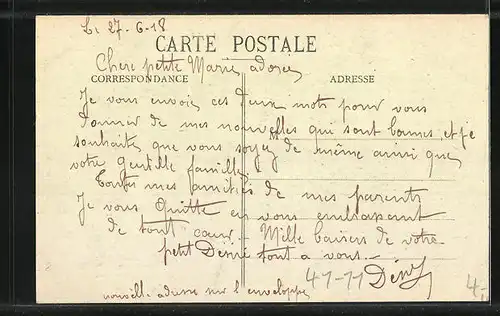 Le 27-6-18
CARTE POSTALE
Chere petite Marie adorée
CORRESPONDANCE
ADRESSE
Je vous envoie ces deux mots pour vous
donner de mes nouvelles qui sont bonnes, et je
souhaite que vous soyez de même ainsi que
votre gentille famille.
Toutes mes amitiés de mes parents
Je vous quitte en vous embrassant
de tout coeur - Mille baisers de votre
petit Désiré tout a vous -
41-11
nouvelle adresse sur l'enveloppe